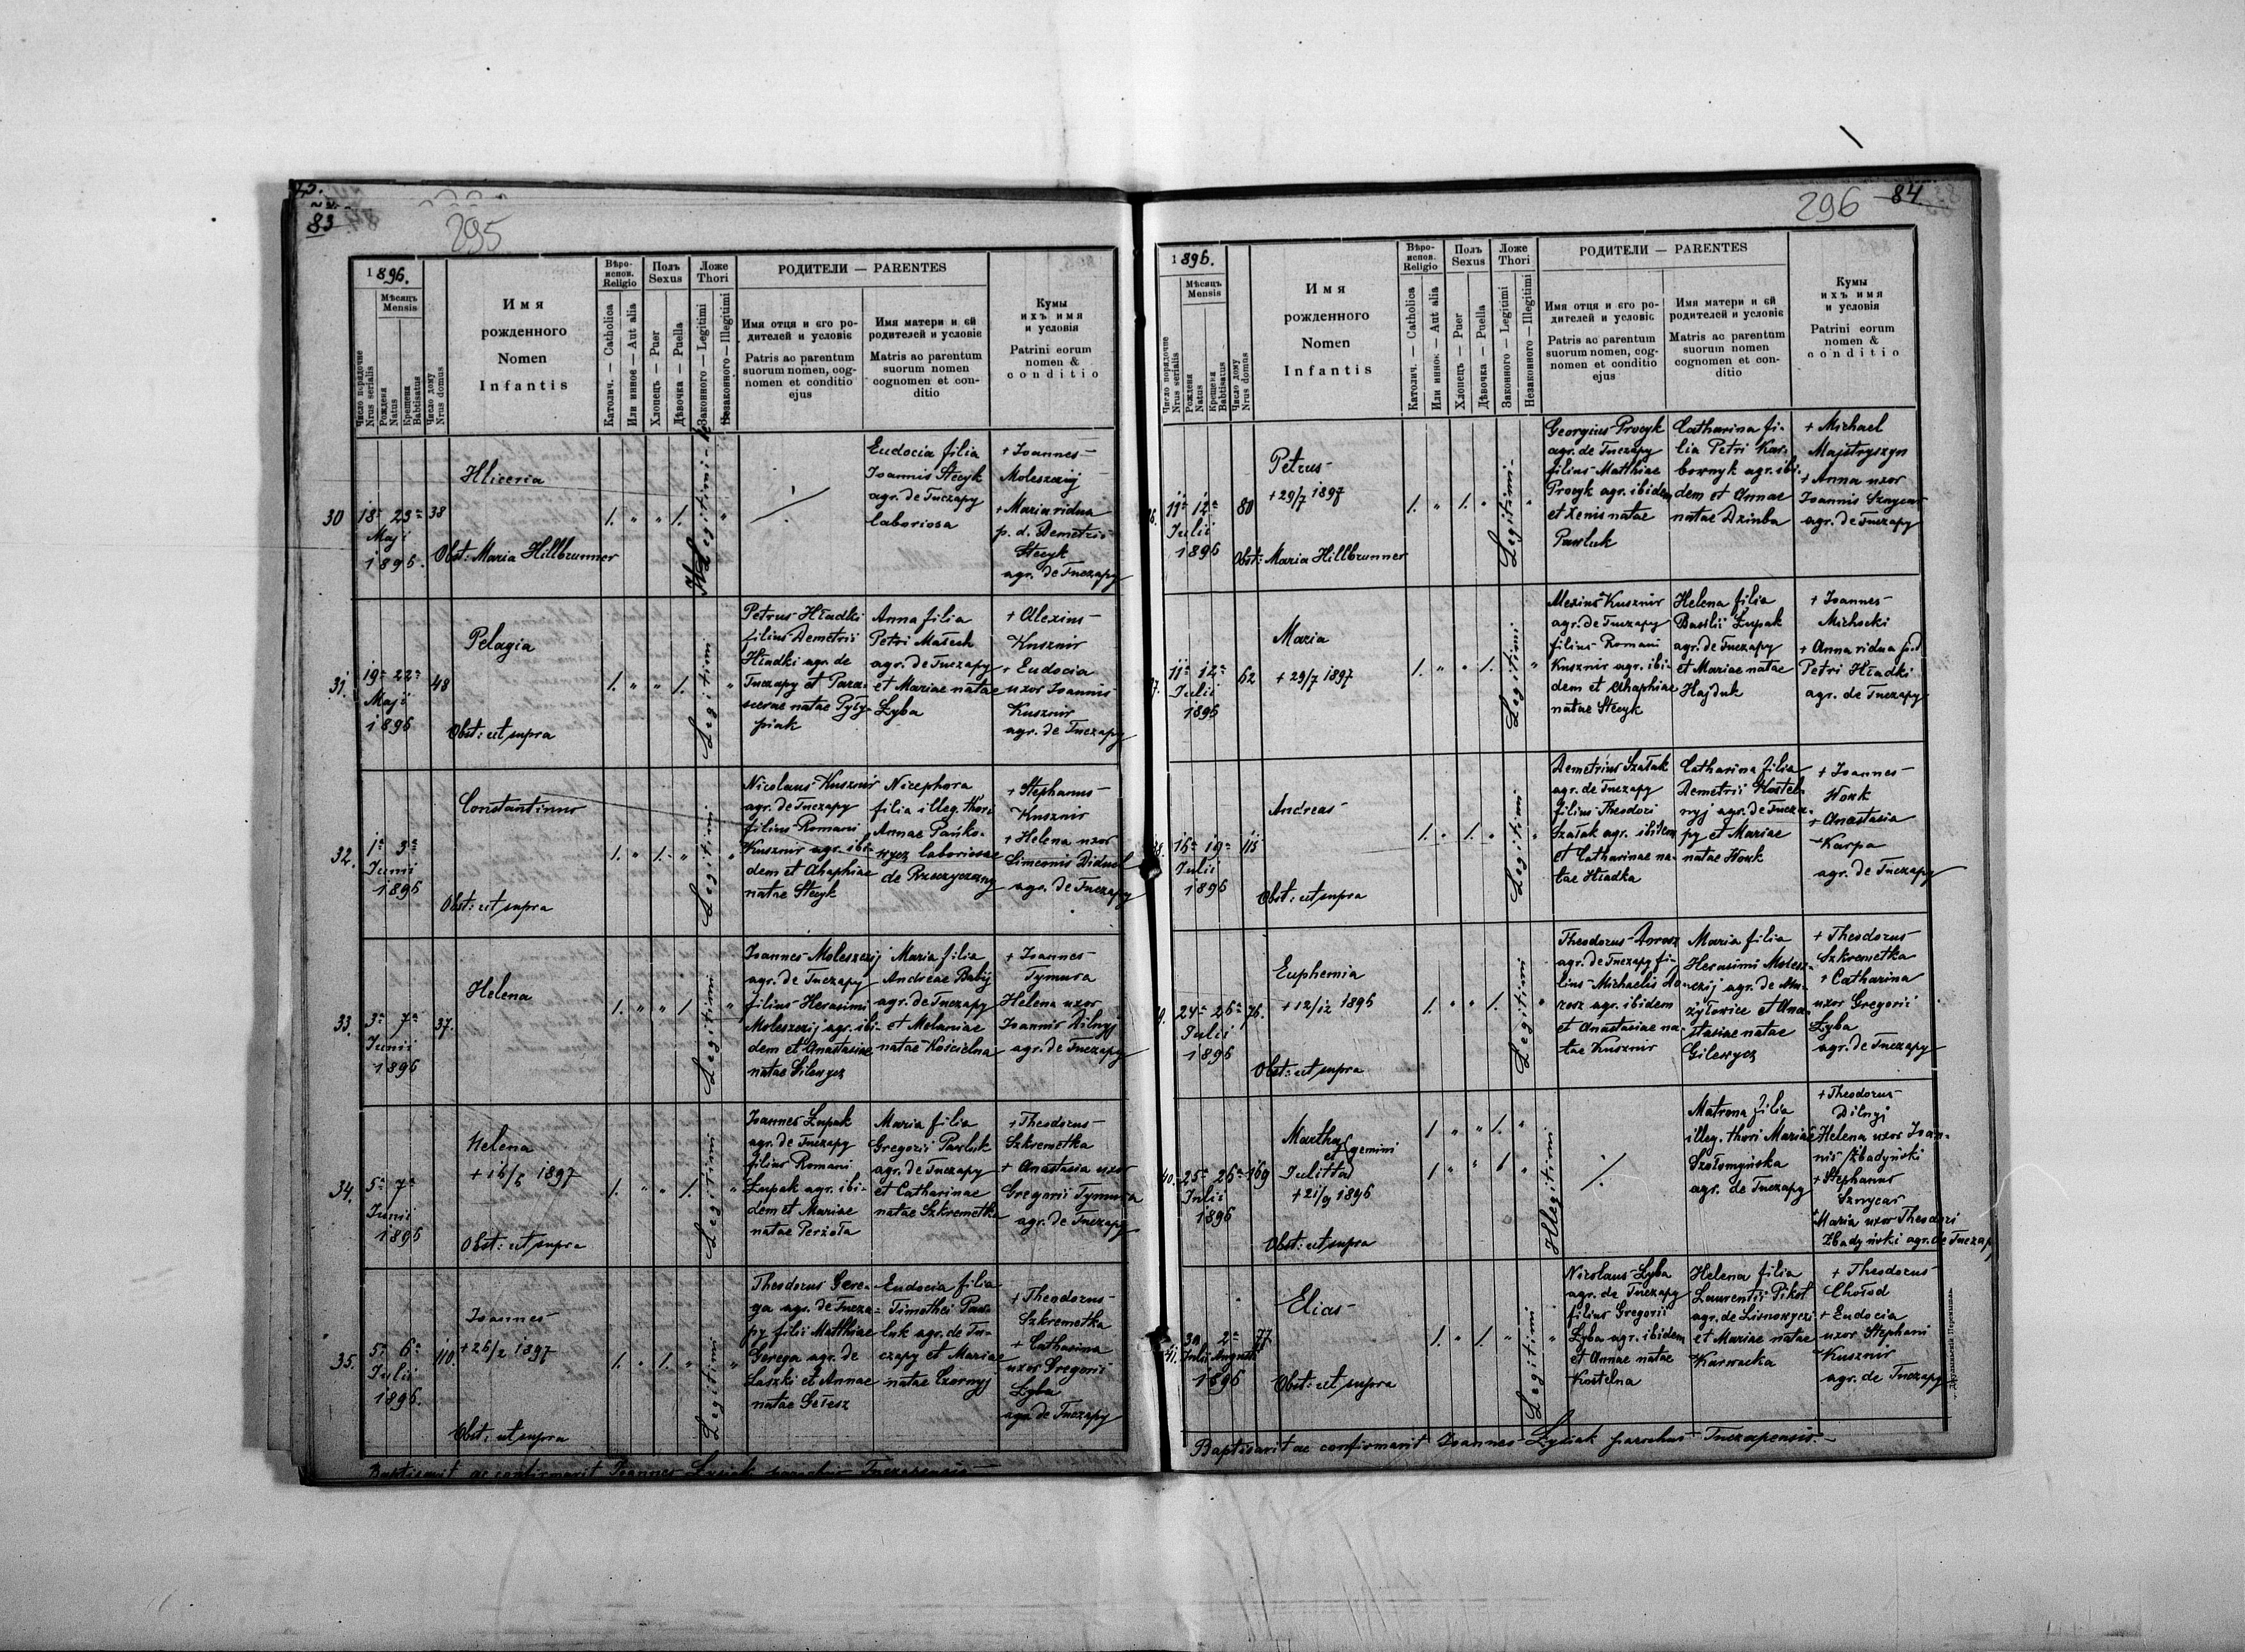 83
295
1896.
Мѣсяць
Mensis
Число порядочне
Nrus serialis
Рожденя
Natus
Крещеня
Babtisatus
Число дому
Nrus domus
Имя
рожденного
Nomen
Infantis
Вѣро-
испов.
Religio
Католич. — Catholica
Или инное — Aut alia
Полъ
Sexus
Хлопець — Puer
Дѣвочка — Puella
Ложе
Thori
Законного — Legitimi
Незаконного — Illegitimi
РОДИТЕЛИ — PARENTES
Имя отця и єго ро-
дителей и условіє
Patris ac parentum
suorum nomen, cog-
nomen et conditio
ejus
Имя матери и єй
родителей и условіє
Matris ac parentum
suorum nomen
cognomen et con-
ditio
Кумы
ихъ имя
и условія
Patrini eorum
nomen &
conditio
30
18a 23a
Maji
1896.
38
Hliceria
Obst: Maria Hillbrunner
1. " " 1.
Illegitimi
Eudocia filia
Joannis Stecyk
agr. de Tuczapy
laboriosa
+ Joannes
Moleszczij
+ Maria vidua
p. d. Demetrio
Stecyk
agr. de Tuczapy
31.
19a 22a
Maji
1896
48
Pelagia
Obst: ut supra
1. " " 1.
Legitimi
"
Petrus Hładki
filius Demetrii
Hładki agr. de
Tuczapy et Paras-
cevae natae Pyły-
piak
Anna filia
Petri Małech
agr. de Tuczapy
et Mariae natae
Łyba
+ Alexius
Kusznir
+ Eudocia
uxor Joannis
Kusznir
agr. de Tuczapy
32.
1a 3a
Junii
1896
Constantinus
Obst: ut supra
1. " 1. "
Legitimi
"
Nicolaus Kusznir
agr. de Tuczapy
filius Romani
Kusznir agr. ibi-
dem et Ahaphiae
natae Stecyk
Nicephora
filia illeg. thori
Annae Pańko-
wycz laboriosae
de Rzeczyczany
+ Stephanus
Kusznir
+ Helena uxor
Simeonis Diduch
agr. de Tuczapy
33.
3a 7a
Junii
1896
37.
Helena
1. " " 1.
Legitimi
"
Joannes Moleszczij
agr. de Tuczapy
filius Herasimi
Moleszczij agr. ibi-
dem et Anastasiae
natae Gilewycz
Maria filia
Andreae Babij
agr. de Tuczapy
et Melaniae
natae Kościelna
+ Joannes
Tymura
Helena uxor
Joannis Dilnyj
agr. de Tuczapy
34.
5a 7a
Junii
1896
Helena
+ 16/6 1897
Obst: ut supra
1. " " 1.
Legitimi
"
Joannes Łupak
agr. de Tuczapy
filius Romani
Łupak agr. ibi-
dem et Mariae
natae Perzoła
Maria filia
Gregorii Pawluk
agr. de Tuczapy
et Catharinae
natae Szkremetka
+ Theodorus
Szkremetka
+ Anastasia uxor
Gregorii Tymura
agr. de Tuczapy
35.
5a 6a
Julii
1896.
110.
Joannes
+ 26/2 1897
Obst: ut supra
1. " 1. "
Legitimi
"
Theodorus Gere-
ga agr. de Tucza-
py filii Matthiae
Gerega agr. de
Laszki et Annae
natae Gełesz
Eudocia filia
Timothei Paw-
luk agr. de Tu-
czapy et Mariae
natae Czornyj
+ Theodorus
Szkremetka
+ Catharina
uxor Gregorii
Łyba
agr. de Tuczapy
Baptisavit ac confirmavit Joannes Łysiak parochus Tuczapensis
296 84
1896.
Мѣсяць
Mensis
Число порядочне
Nrus serialis
Рожденя
Natus
Крещеня
Babtisatus
Число дому
Nrus domus
Имя
рожденного
Nomen
Infantis
Вѣро-
испов.
Religio
Католич. — Catholica
Или инное — Aut alia
Полъ
Sexus
Хлопець — Puer
Дѣвочка — Puella
Ложе
Thori
Законного — Legitimi
Незаконного — Illegitimi
РОДИТЕЛИ — PARENTES
Имя отця и єго ро-
дителей и условіє
Patris ac parentum
suorum nomen, cog-
nomen et conditio
ejus
Имя матери и єй
родителей и условіє
Matris ac parentum
suorum nomen
cognomen et con-
ditio
Кумы
ихъ имя
и условія
Patrini eorum
nomen &
conditio
11a 12a
Julii
1896
80
Petrus
+ 29/7 1897
Obst: Maria Hillbrunner
1. " 1. "
Legitimi
Georgius Procyk
agr. de Tuczapy
filius Matthiae
Procyk agr. ibidem
et Xenis natae
Pawluk
Catharina fi-
lia Petri Kar-
bownyk agr. ibi-
dem et Annae
natae Dziuba
+ Michael
Majstryszyn
+ Anna uxor
Joannis Sznycar
agr. de Tuczapy
11a 12a
Julii
1896
62
Maria
+ 29/7 1897
1. " " 1.
Legitimi
"
Alexius Kusznir
agr. de Tuczapy
filius Romani
Kusznir agr. ibi-
dem et Ahaphiae
natae Stecyk
Helena filia
Basilii Łupak
agr. de Tuczapy
et Mariae natae
Hajduk
+ Joannes
Michocki
+ Anna vidua p.d
Petri Hładki
agr. de Tuczapy
16a 19a
Julii
1896
115
Andreas
Obst: ut supra
1. " 1. "
Legitimi
"
Demetrius Szałak
agr. de Tuczapy
filius Theodori
Szałak agr. ibidem
et Catharinae na-
tae Hładka
Catharina filia
Demetrii Kostel-
nyj agr. de Tucza-
py et Mariae
natae Wowk
+ Joannes
Wowk
+ Anastasia
Karpa
agr. de Tuczapy
24a 26a
Julii
1896
76.
Euphemia
+ 12/12 1896
Obst: ut supra
1. " " 1.
Legitimi
"
Theodorus Dorosz
agr. de Tuczapy fi-
lius Michaelis Do-
rosz agr. ibidem
et Anastasiae na-
tae Kusznir
Maria filia
Herasimi Molesz-
czij agr. de Mu-
żyłowice et Ana-
stasiae natae
Gilewycz
+ Theodorus
Szkremetka
+ Catharina
uxor Gregorii
Łyba
agr. de Tuczapy
40.
25a 26a
Julii
1896
169
Martha
et gemini
Julitta
+ 21/9 1896
Obst: ut supra
1 " " 1. "
1 " " 1 "
Illegitimi
Matrona filia
illeg. thori Mariae
Szołomyńska
agr. de Tuczapy
+ Theodorus
Dilnyj
Helena uxor Joan-
nis Zbadyński
+ Stephanus
Sznycar
+ Maria uxor Theodori
Zbadyński agr. de Tuczapy
41.
30 2a
Julii Augusti
1896
77
Elias
Obst: ut supra
1. " 1. "
Legitimi
"
Nicolaus Łyba
agr. de Tuczapy
filius Gregorii
Łyba agr. ibidem
et Annae natae
Kostelna
Helena filia
Laurentii Pikoł
agr. de Lisnowyczi
et Mariae natae
Karwacka
+ Theodorus
Chołod
+ Eudocia
uxor Stephani
Kusznir
agr. de Tuczapy
Baptisavit ac confirmavit Joannes Łysiak parochus Tuczapensis.